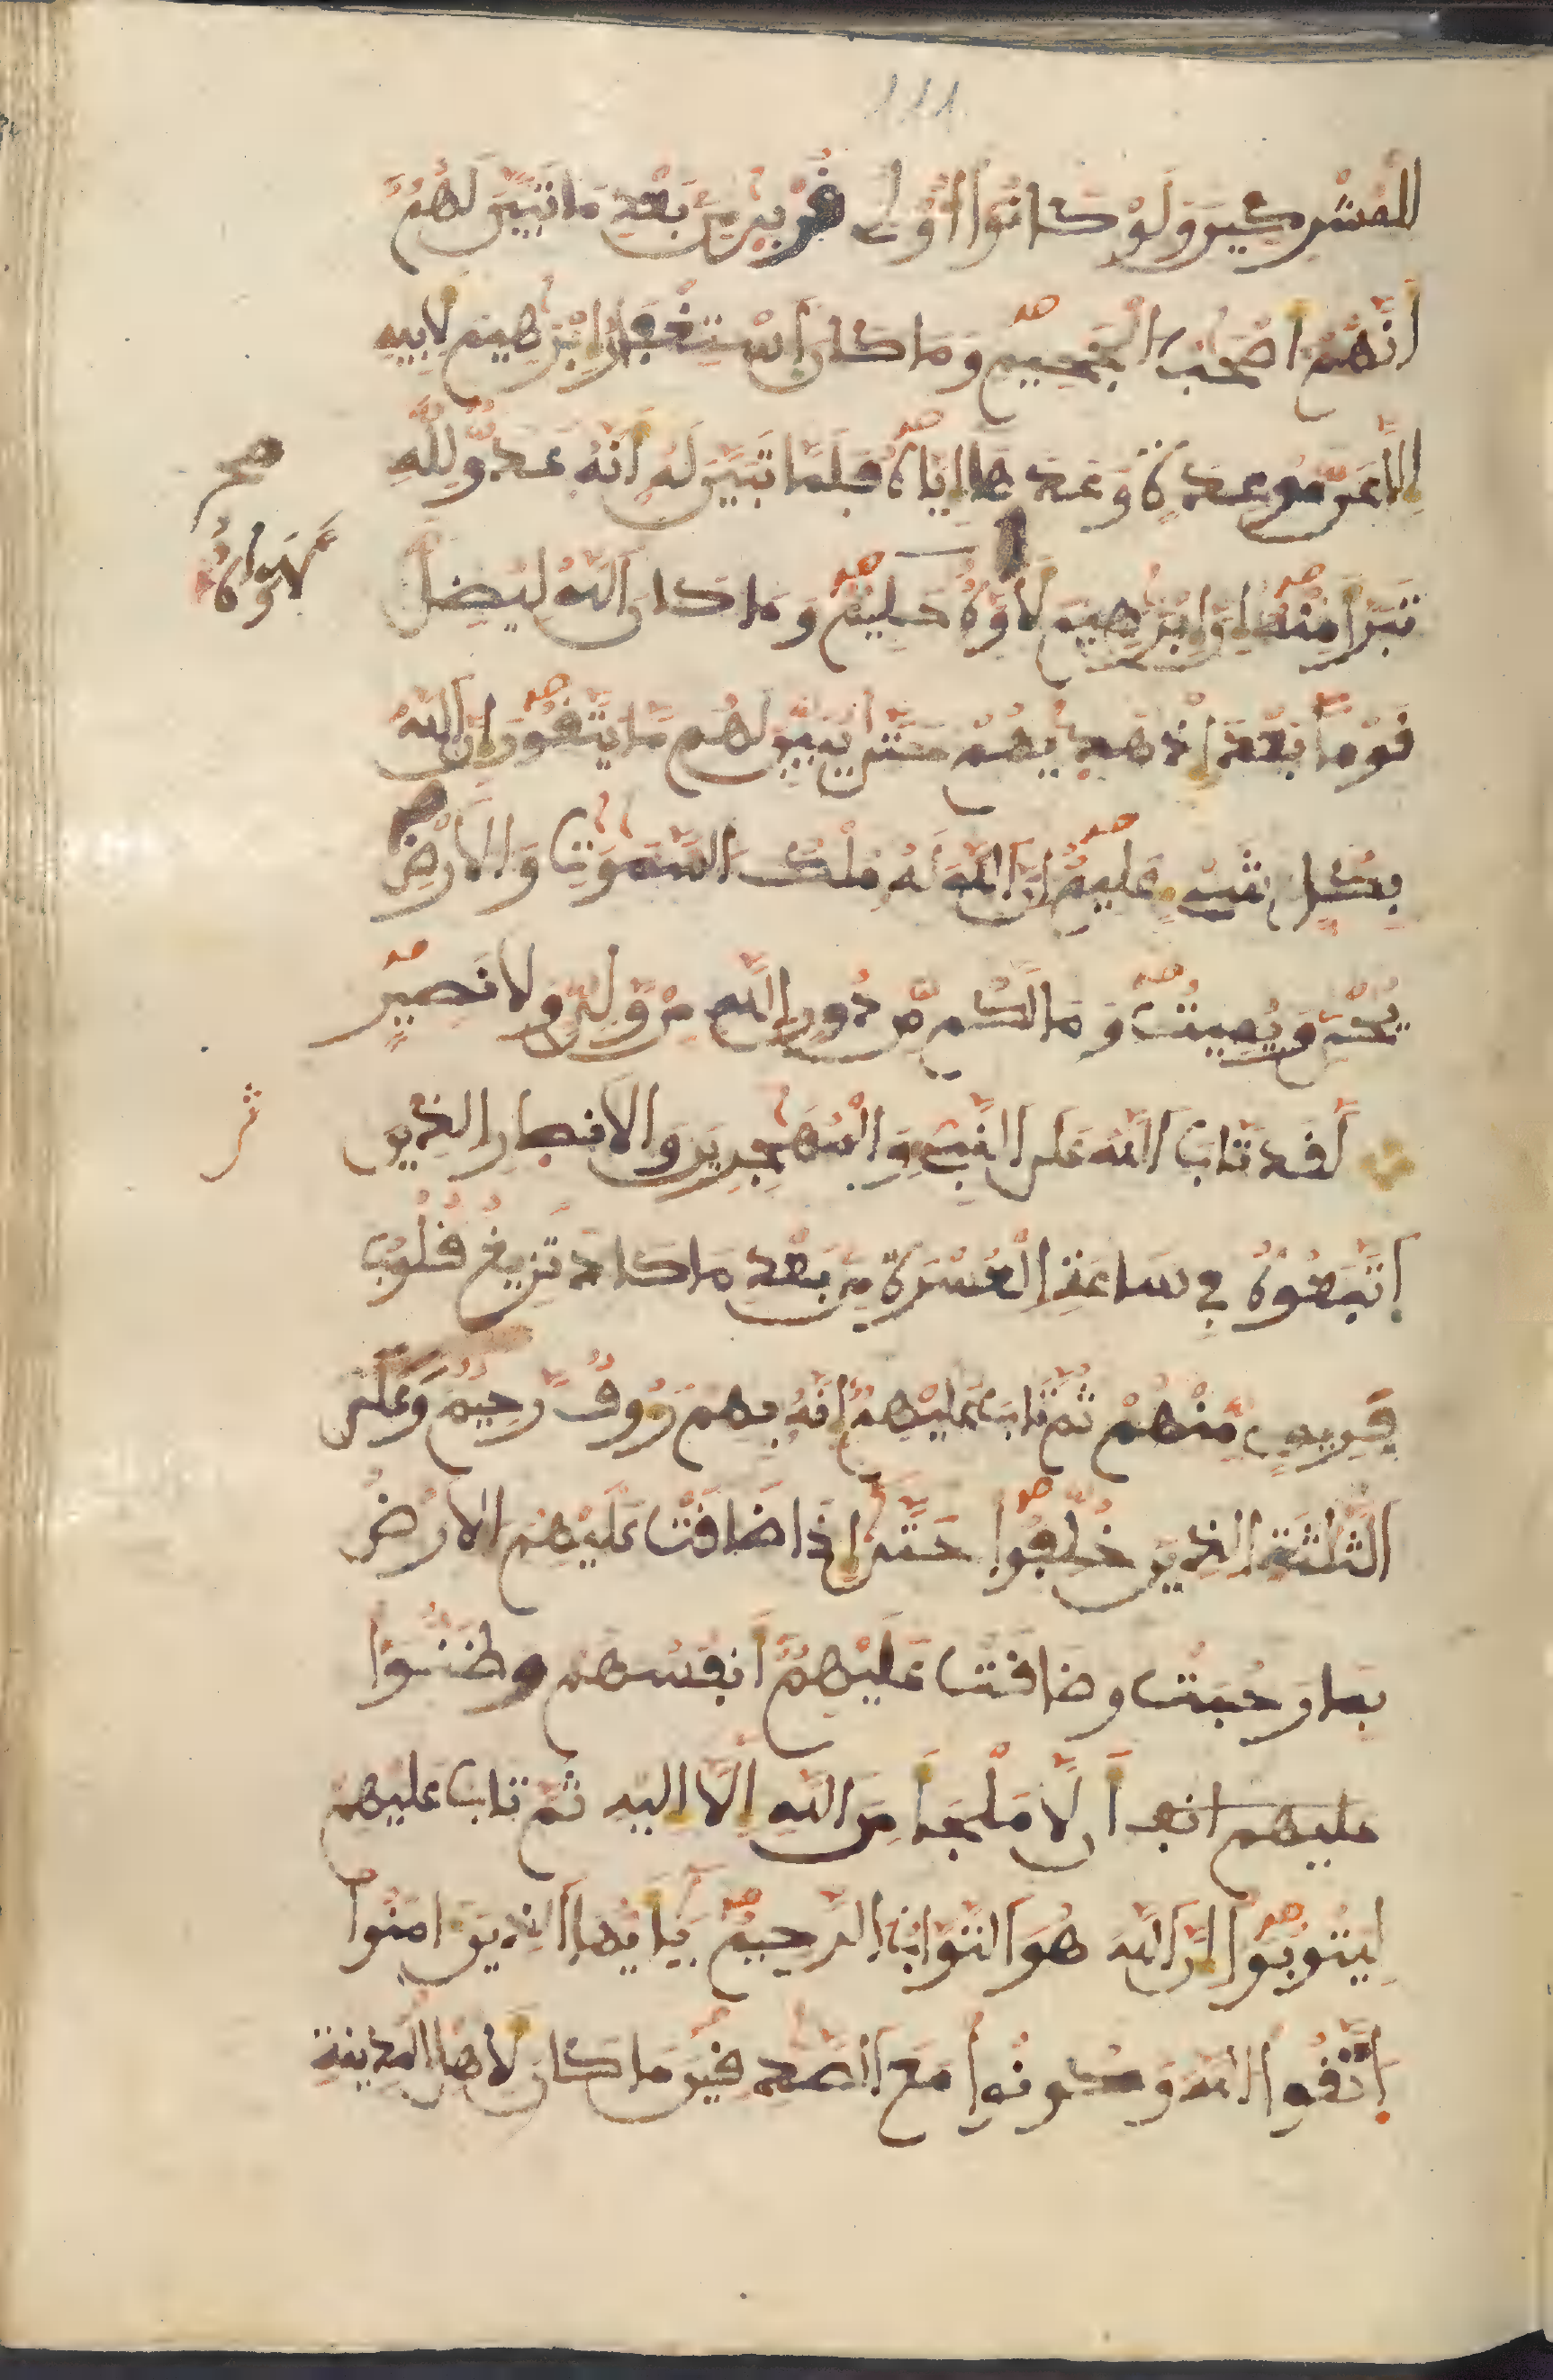 111
للمشركين ولو كانوا أولى قربى من بعد ما تبين لهم
أنهم أصحب الجحيم وما كان استغفار إبرهيم لأبيه
إلا عن موعدة وعدها إياه فلما تبين له أنه عدو لله
صح
تبرأ منه إن إبرهيم لأوه حليم وما كان الله ليضل
قوما بعد إذ هديهم حتى يبين لهم ما يتقون إن الله
بكل شيء عليم إن الله له ملك السموت والأرض
يحي ويميت وما لكم من دون الله من ولي ولا نصير
لقد تاب الله على النبي والمهجرين والأنصار الذين
اتبعوه في ساعة العسرة من بعد ما كاد تزيغ قلوب
فريق منهم ثم تاب عليهم إنه بهم رؤوف رحيم وعلى
الثلثة الذين خلفوا حتى إذا ضاقت عليهم الأرض
بما رحبت وضاقت عليهم أنفسهم وظنوا
عليهم أنفـ أن لا ملجأ من الله إلا إليه ثم تاب عليهم
ليتوبوا إن الله هو التواب الرحيم يأيها الذين امنوا
اتقوا الله وكونوا مع الصدقين ما كان لأهل المدينة